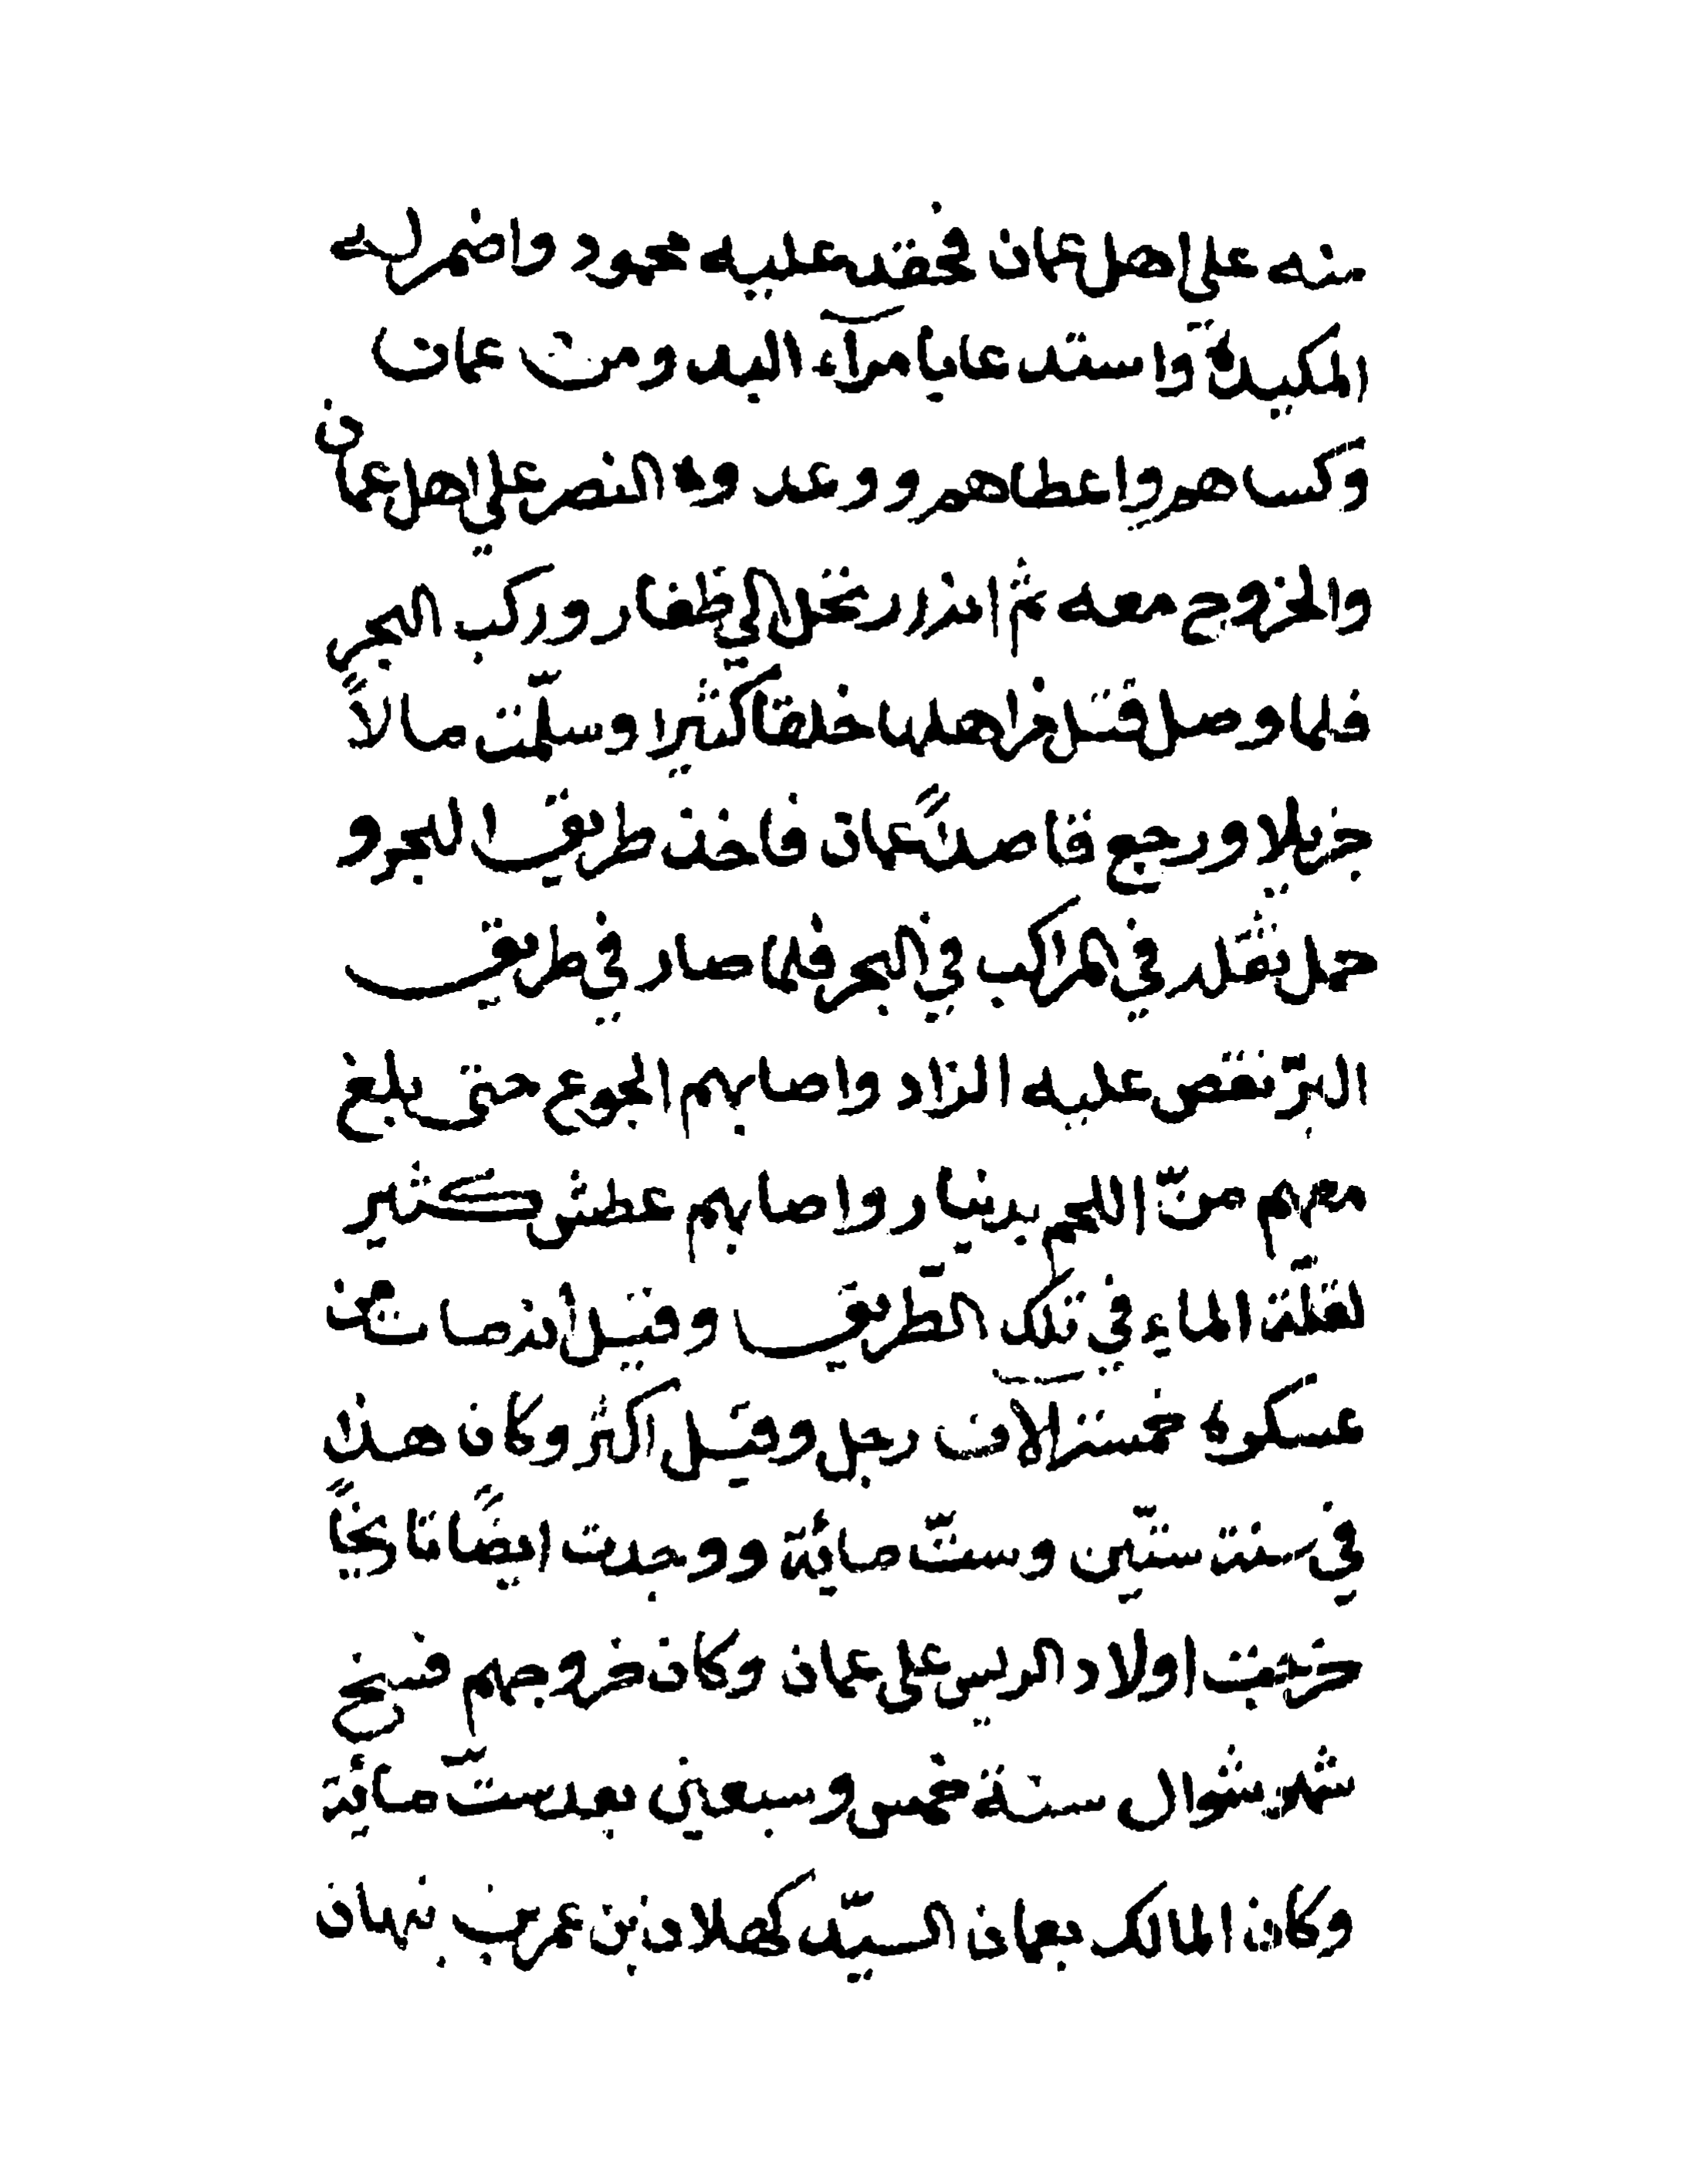 منه على اهل عمان فحقد عليه محمود واضمر له
المكيدة واستدعا بامرآء البدو من عمان
وكساهم واعطاهم ووعدوه النصر على اهل عمان
والخروج معه ثم انه ارتحل الى ظفار وركب البحر
فلما وصل قتل من اهلها خلقا كثيرا وسلّمت مالاً
جزيلا ورجع قاصداً عمان فاخذ طريق البحر و
حمل ثقله في المراكب في البحر فلما صار في طريق
البرّ نقص عليه الزاد واصابهم الجوع حتى بلغ
معهم منّ اللحم بدينار واصابهم عطش كثير
لقلّة الماء في تلك الطّريق وقيل أنه مات من
عسكره خمسة الآف رجل وقيل اكثر وكان هذا
في سنة ستّين وستّ مائة ووجدت ايضًا تاريخًا
خرجت اولاد الريس على عمان وكان خروجهم في سلخ
شهر شوال سنة خمس وسبعين بعد ستّ مائة
وكان المالك بعمان السيّد كهلان بن عمر بن نبهان